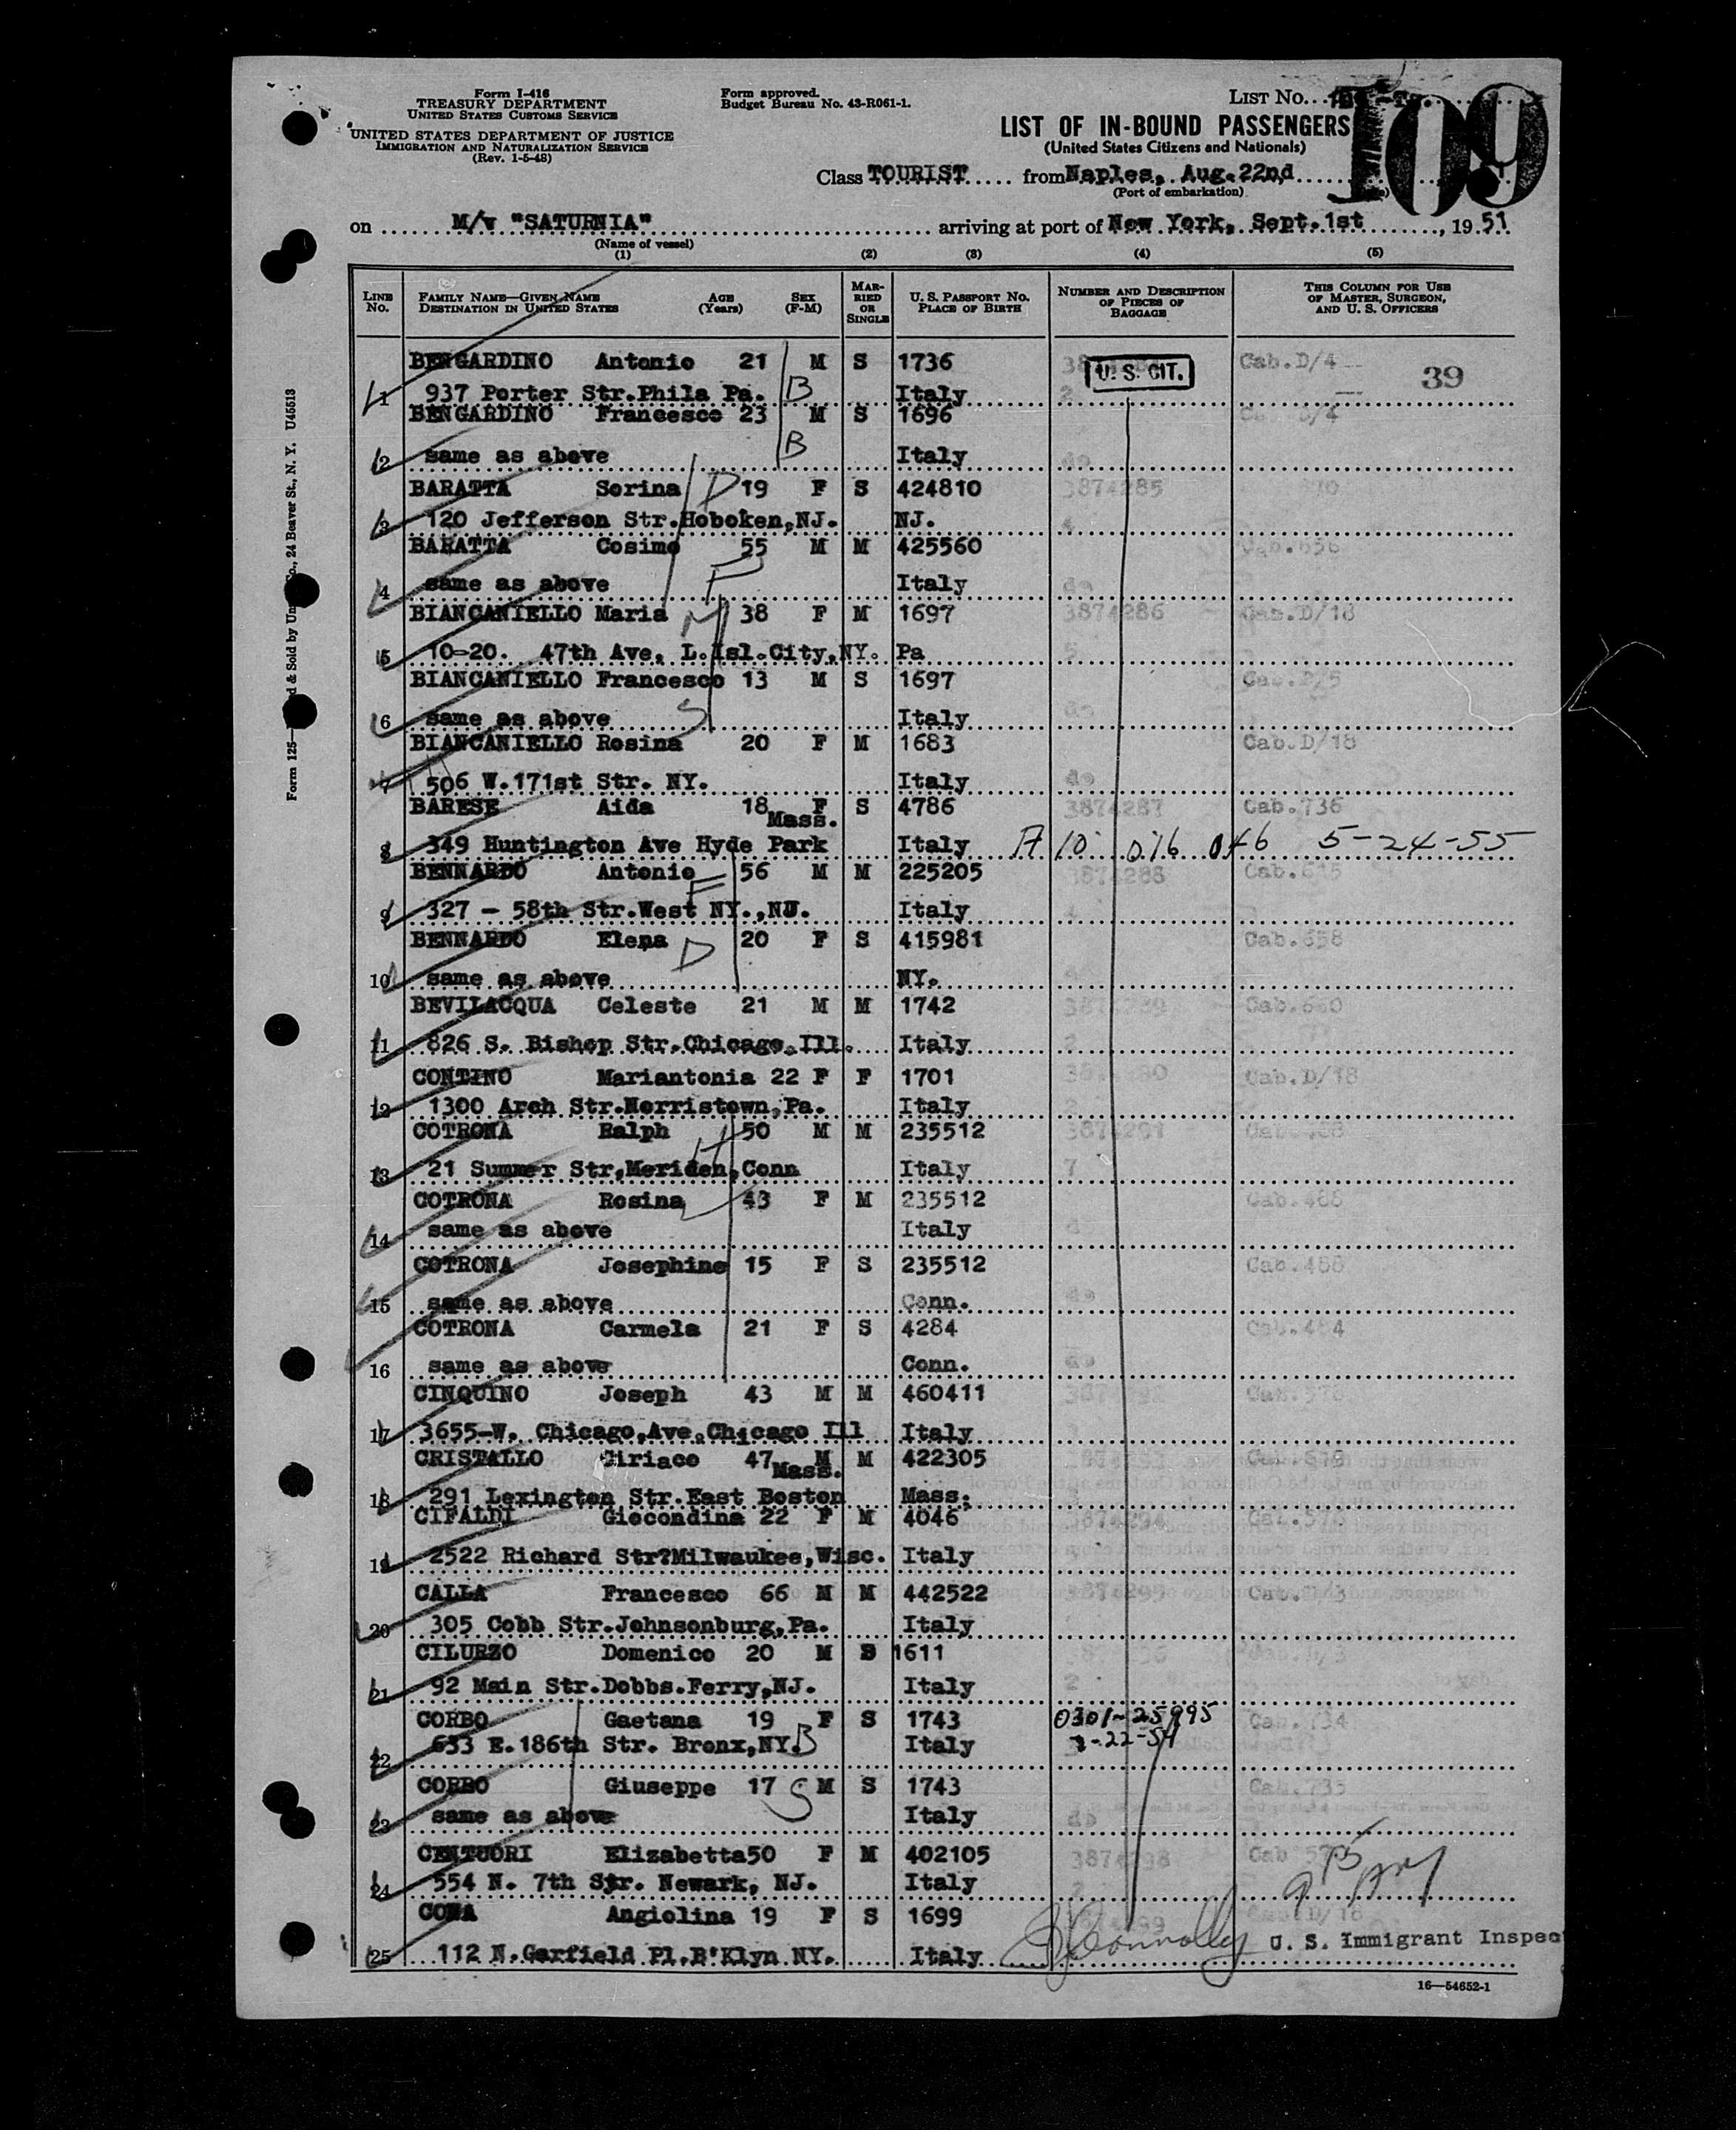 Form I-416
TREASURY DEPARTMENT
UNITED STATES CUSTOMS SERVICE
UNITED STATES DEPARTMENT OF JUSTICE
IMMIGRATION AND NATURALIZATION SERVICE
(Rev. 1-5-48)
Form approved.
Budget Bureau No. 43-R061-1.
LIST No.
109
LIST OF IN-BOUND PASSENGERS
(United States Citizens and Nationals)
Class TOURIST from Naples, Aug. 22nd
(Port of embarkation)
on M/v "SATURNIA" arriving at port of New York, Sept. 1st, 19 51
(Name of vessel)
(1) (2) (3) (4) (5)
LINE No. FAMILY NAME—GIVEN NAME DESTINATION IN UNITED STATES AGE (Years) SEX (F-M) MARRIED OR SINGLE U. S. PASSPORT No. PLACE OF BIRTH NUMBER AND DESCRIPTION OF PIECES OF BAGGAGE THIS COLUMN FOR USE OF MASTER, SURGEON, AND U. S. OFFICERS
BENGARDINO Antonio 21 M S 1736 U. S. CIT. Cab.D/4 39
1 937 Porter Str.Phila Pa. B Italy 2
BENGARDINO Francesco 23 M S 1696
2 same as above B Italy do
BARATTA Serina D 19 F S 424810 3874285
3 120 Jefferson Str.Hoboken,NJ. NJ.
BARATTA Cosimo 55 M M 425560 Cab.656
4 same as above F Italy do
BIANCANIELLO Maria M 38 F M 1697 3874286 Cab.D/18
5 10-20. 47th Ave, L.Isl.City,NY. Pa 5
BIANCANIELLO Francesco 13 M S 1697
6 same as above S Italy do
BIANCANIELLO Rosina 20 F M 1683 Cab.D/18
7 506 W.171st Str. NY. Italy do
BARESE Aida 18 F S 4786 3874287 Cab.736
Mass.
8 349 Huntington Ave Hyde Park Italy A 10 016 046 5-24-55
BENNARDO Antonio 56 M M 225205 3874288
9 327 - 58th Str.West NY.,NJ. F Italy
BENNARDO Elena 20 F S 415981 Cab.658
10 same as above D NY.
BEVILACQUA Celeste 21 M M 1742
11 826 S. Bishop Str.Chicago.Ill. Italy 2
CONTINO Mariantonia 22 F F 1701 Cab.D/18
12 1300 Arch Str.Norristown,Pa. Italy
COTRONA Ralph 50 M M 235512 3874291
13 21 Summer Str,Meriden,Conn H Italy 7
COTRONA Rosina 43 F M 235512 Cab.488
14 same as above Italy
COTRONA Josephine 15 F S 235512 Cab.488
15 same as above Conn. do
COTRONA Carmela 21 F S 4284 Cab.484
16 same as above Conn. do
CINQUINO Joseph 43 M M 460411
17 3655-W. Chicago,Ave.Chicago Ill Italy
CRISTALLO Ciriaco 47 M M 422305
Mass.
18 291 Lexington Str.East Boston Mass.
CIFALDI Giocondina 22 F M 4046 3874294 Cab.576
19 2522 Richard Str?Milwaukee,Wisc. Italy
CALLA Francesco 66 M M 442522 3874295
20 305 Cobb Str.Johnsonburg,Pa. Italy
CILURZO Domenico 20 M S 1611
21 92 Main Str.Dobbs.Ferry,NJ. Italy 2
CORBO Gaetana 19 F S 1743 0301-25995 Cab.734
22 633 E.186th Str. Bronx,NY. B Italy
CORBO Giuseppe 17 S M S 1743 Cab.735
23 same as above Italy do
CENTUORI Elizabetta50 F M 402105 3874298
24 554 N. 7th Str. Newark, NJ. Italy
COMA Angiolina 19 F S 1699
25 112 N.Garfield Pl.B'Klyn NY. Italy
Connolly U. S. Immigrant Inspec
16—54652-1